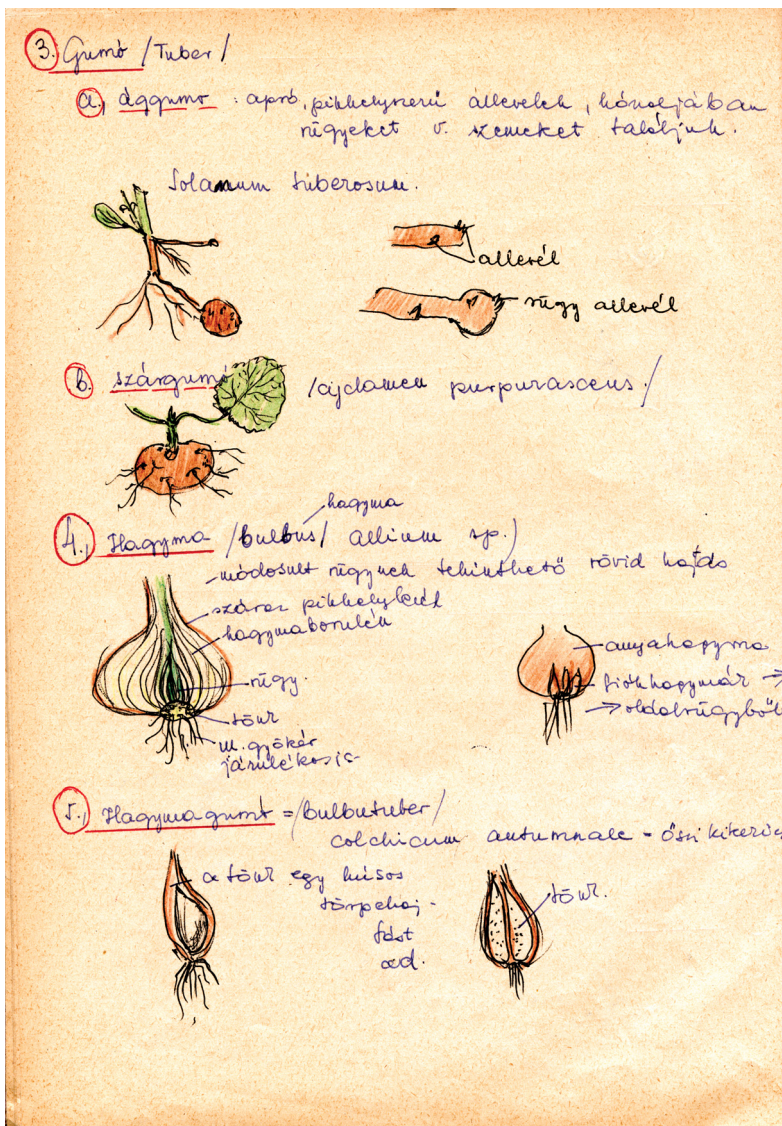 3. Gumó /Tuber/
a, ággumó : apró, pikkelyszerű állevelek, hónaljában
rügyeket v. szemeket találjuk.
Solanum tuberosum.
allevél
rügy allevél
b. szárgumó /ciclamen purpurascens./
hagyma
4., Hagyma /bulbus/ allium sp.)
módosult rügynek tekinthető rövid hajtás
száraz pikkelylevél
hagymaborulék
rügy.
tönk
m. gyökér
járulékos is
anyahagyma
fiókhagymák →
→ oldalrügyből
5., Hagymagumó = /bulbutuber/
colchicum autumnale = őszi kikerics
a tönk egy húsos
törpehaj-
tást
ad.
tönk.